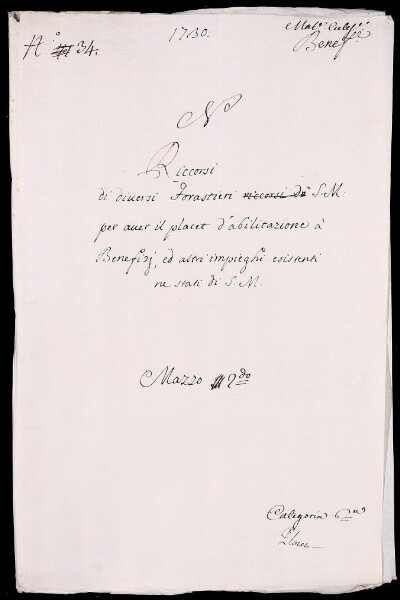 1730.
Mat.e Eccles.e
Benef.
N.o 34.
N.o
Riccorsi
di diversi Forastieri riccorsi da S. M.
per aver il placet d'abilitazione à
Benefizj, ed altri impieghi esistenti
ne stati di S. M.
Mazzo 2.do
Categoria 6.ta